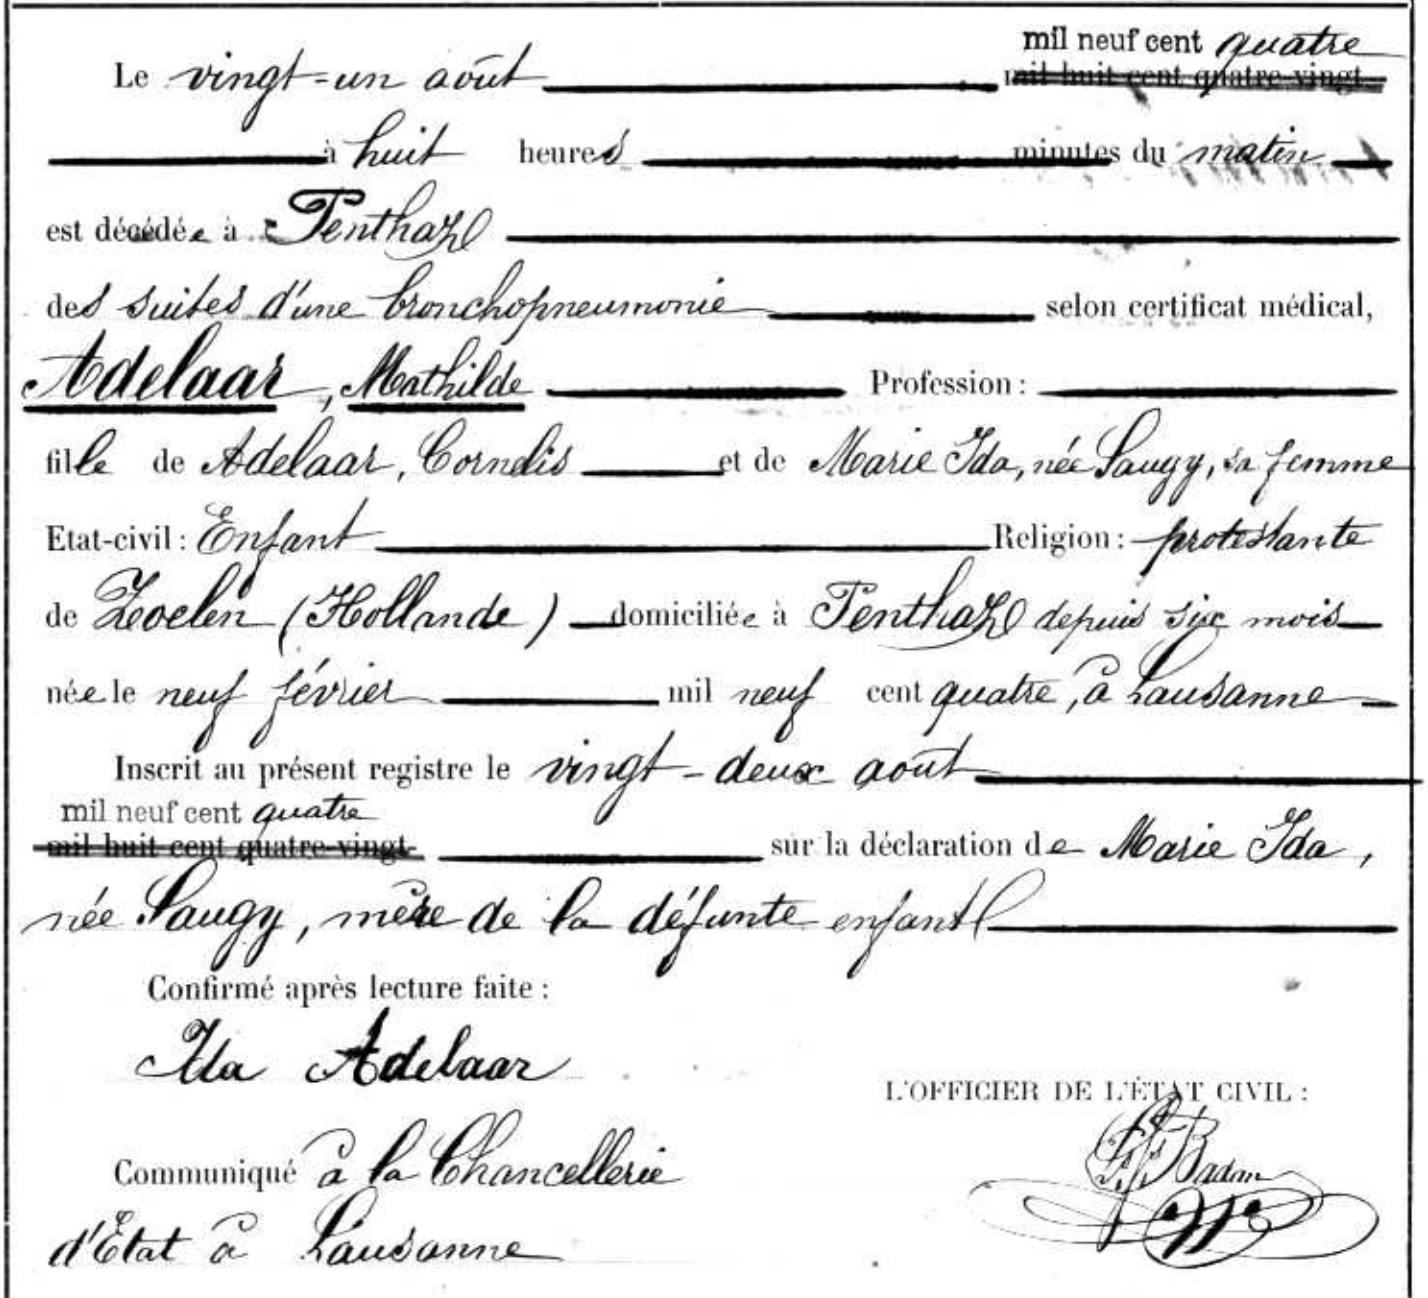 mil neuf cent quatre
Le vingt-un août mil huit cent quatre-vingt
à huit heures minutes du matin
est décédée à Penthaz
des suites d'une bronchopneumonie selon certificat médical,
Adelaar, Mathilde Profession :
fille de Adelaar, Cornelis et de Marie Ida, née Saugy, sa femme
Etat-civil : Enfant Religion : protestante
de Zoelen (Hollande) domiciliée à Penthaz depuis six mois
née le neuf février mil neuf cent quatre, à Lausanne
Inscrit au présent registre le vingt-deux août
mil neuf cent quatre
mil huit cent quatre-vingt sur la déclaration de Marie Ida,
née Saugy, mère de la défunte enfant
Confirmé après lecture faite :
Ida Adelaar
L'OFFICIER DE L'ÉTAT CIVIL :
Badan
Communiqué à la Chancellerie
d'Etat à Lausanne